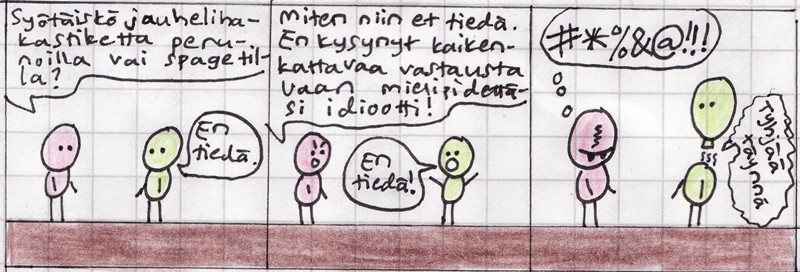 Syötäiskö jauheliha-
kastiketta peru-
noilla vai spagetil-
la?
En
tiedä.
Miten niin et tiedä.
En kysynyt kaiken-
kattavaa vastausta
vaan mielipidettä-
si idiootti!
En
tiedä!
#*%&@!!!
Tyhjää
täynnä